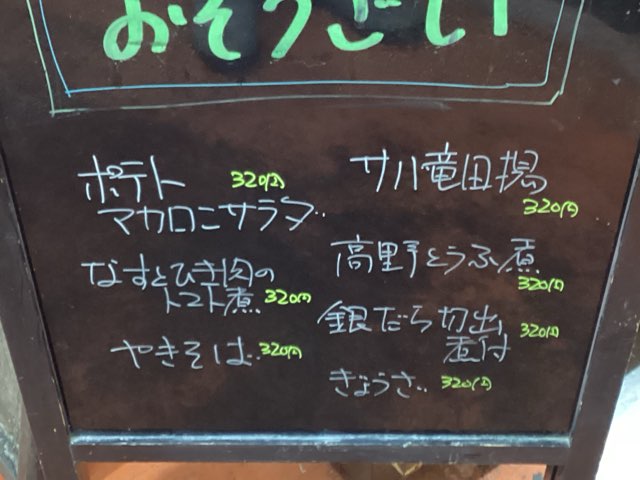 おそうざい
ポテト 320円
マカロニサラダ
なすとひき肉の
トマト煮 320円
やきそば 320円
サバ竜田揚
320円
高野とうふ煮
320円
銀だら切出 320円
煮付
ぎょうざ 320円